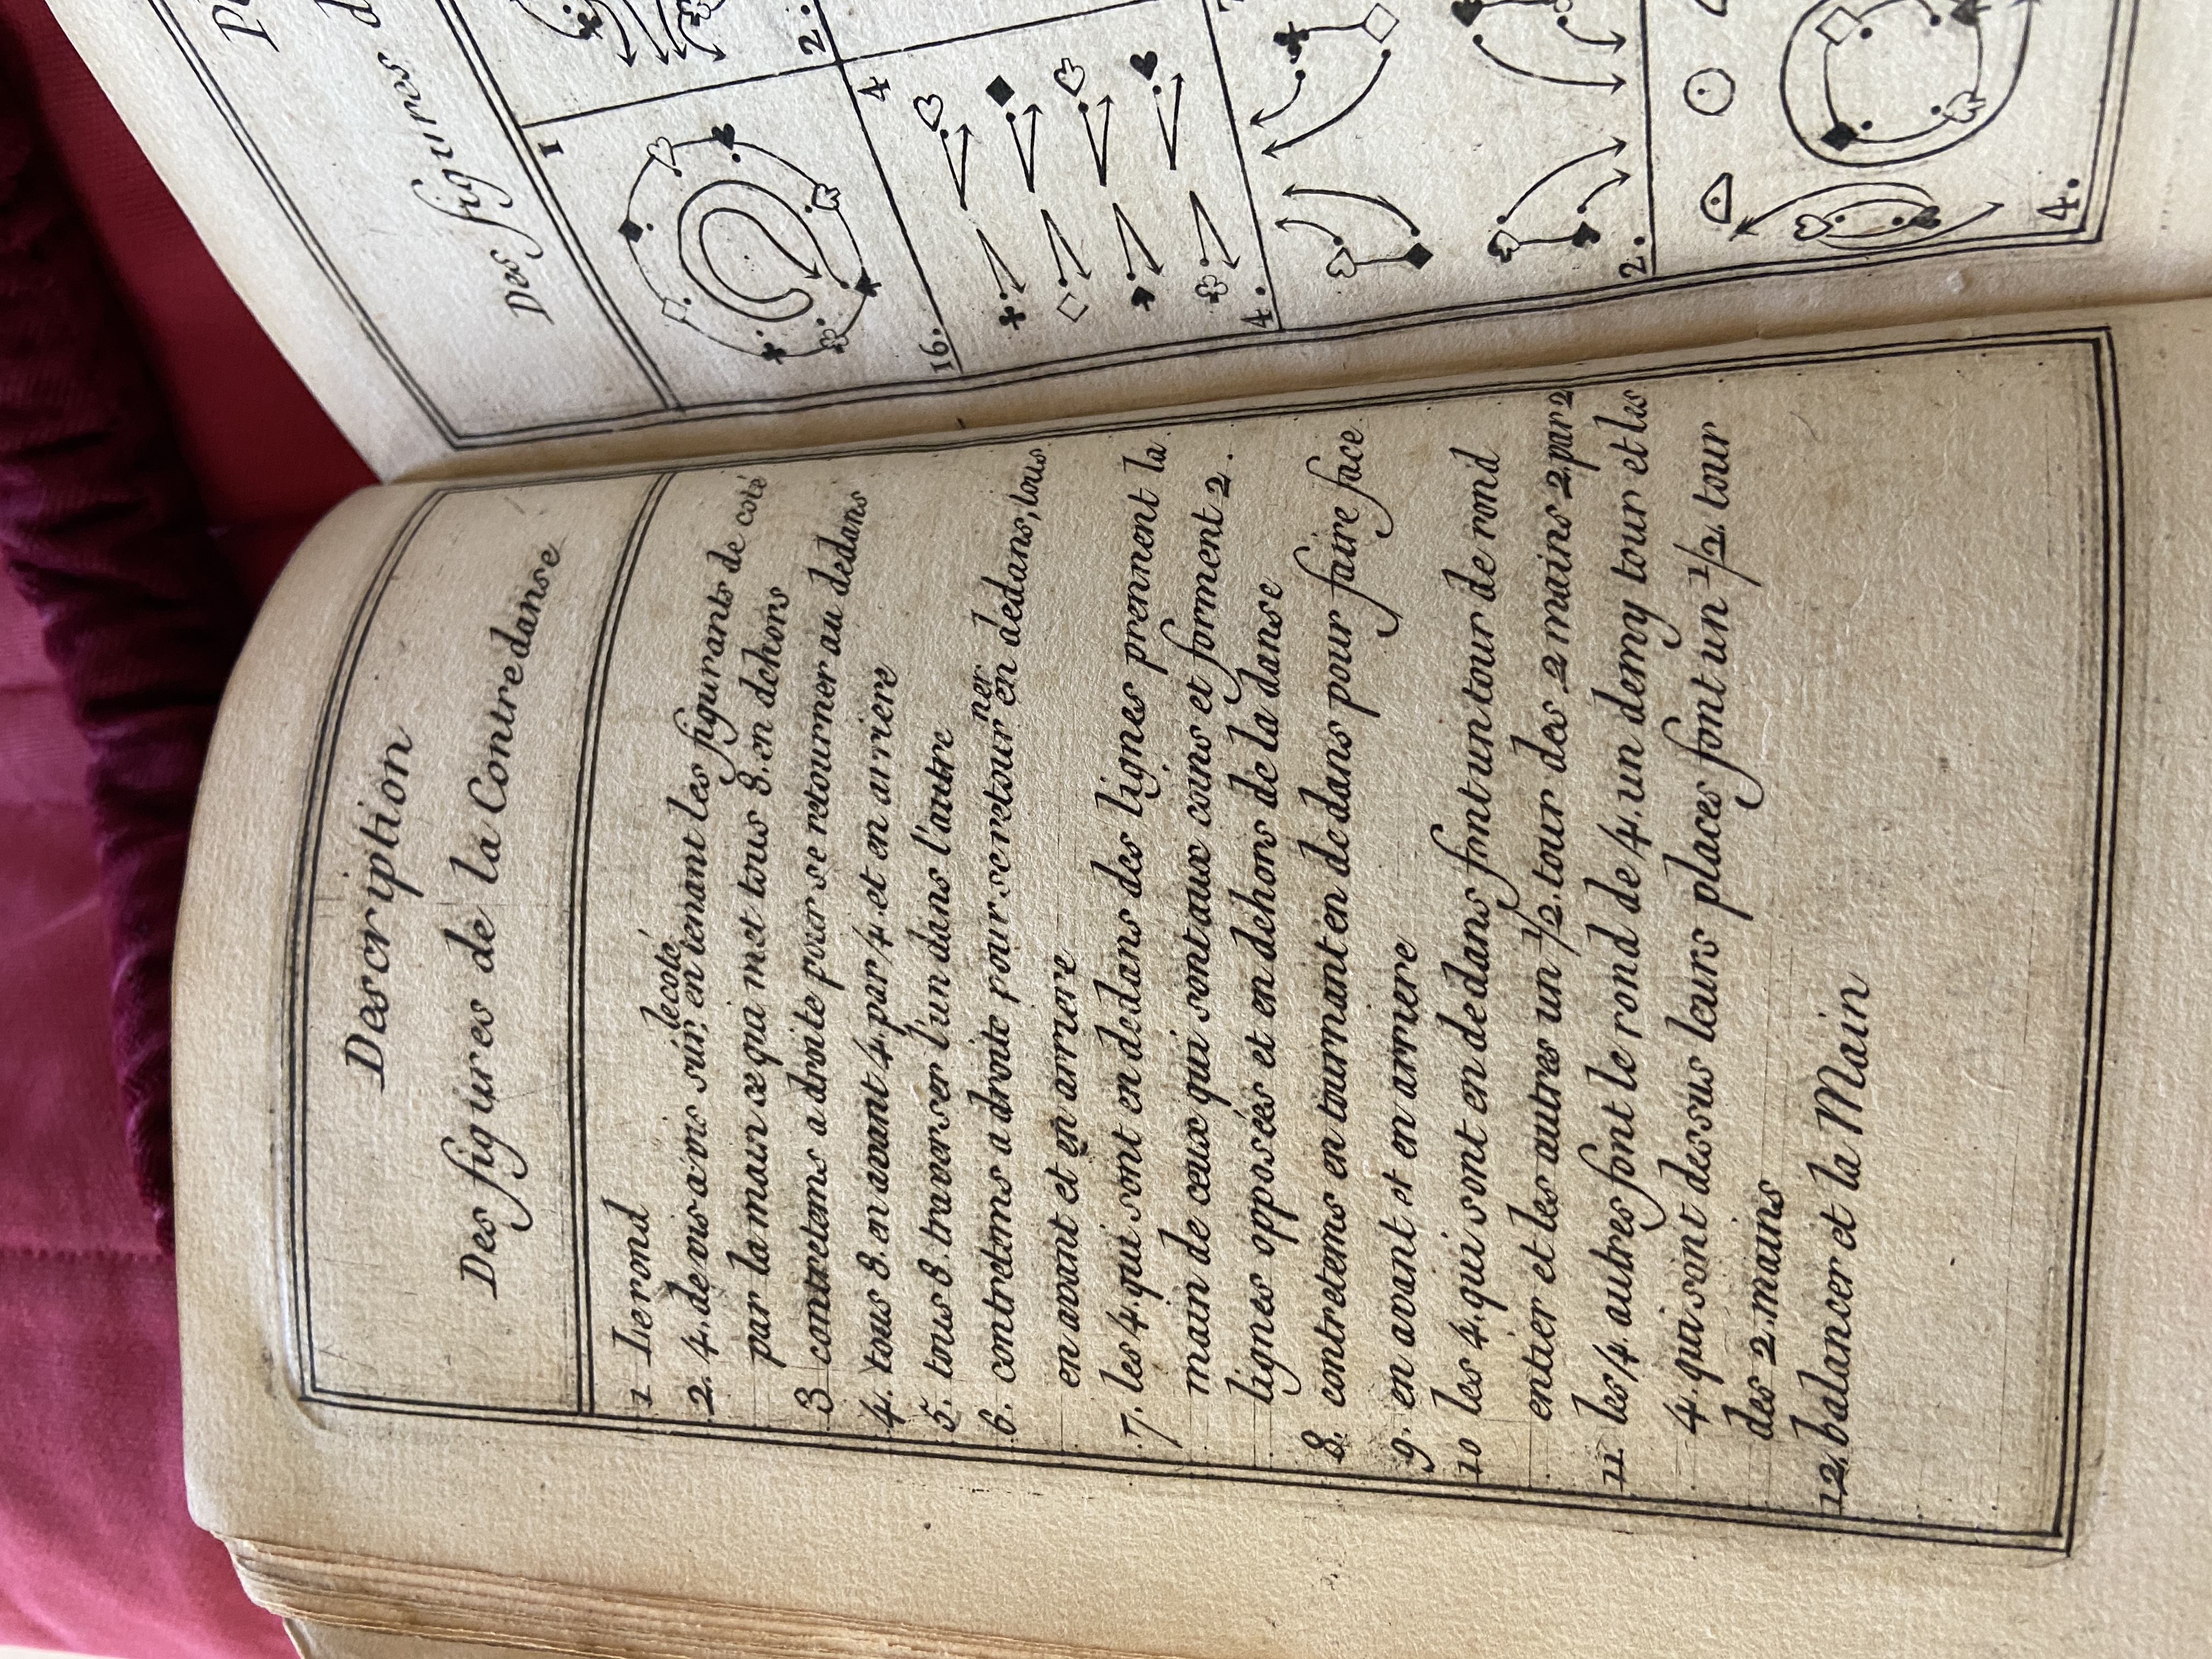 Description
Des figures de la Contredanse
1 Le rond
2. 4. de vis a vis sur le coté, en tenant les figurants de coté
par la main ce qui met tous 8. en dehors
3 contretems a droite pour se retourner au dedans
4. tous 8. en avant 4. par 4. et en arriere
5. tous 8. traverser l'un dans l'autre
6. contretems a droite pour se retourner en dedans, tous
en avant et en arriere
7. les 4. qui sont en dedans des lignes prennent la
main de ceux qui sont aux coins et forment 2.
lignes opposées et en dehors de la danse
8. contretems en tournant en dedans pour faire face
9. en avant et en arriere
10 les 4. qui sont en dedans font un tour de rond
entier et les autres un 1/2. tour des 2 mains 2. par 2
11. les 4. autres font le rond de 4. un demy tour et les
4. qui sont dessus leurs places font un 1/2. tour
des 2. mains
12. balancer et la Main
Des figures d
1
2.
16.
4
4.
2.
4.